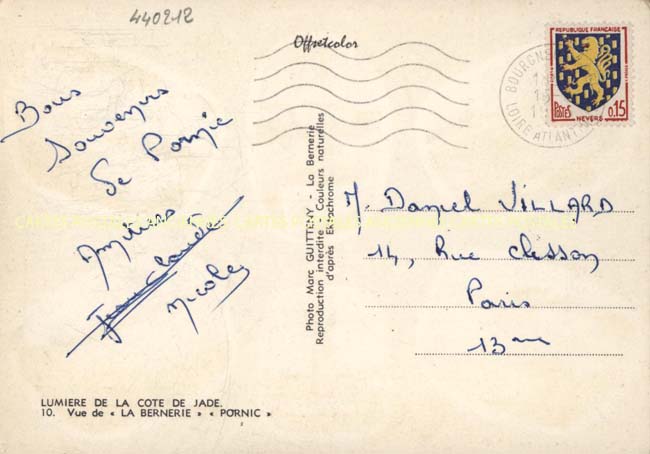 440212
Offsetcolor
REPUBLIQUE FRANÇAISE
POSTES
0,15
NEVERS
BOURGN
LOIRE ATLANT
Bons
Souvenirs
de Pornic
Amitiés
Jean Claude
Nicole
Photo Marc GUITTENY - La Bernerie
Reproduction interdite - Couleurs naturelles
d'après Ektachrome
M. Daniel VILLARD
14, Rue Clisson
Paris
13ème
LUMIERE DE LA COTE DE JADE.
10. Vue de « LA BERNERIE » « PORNIC »